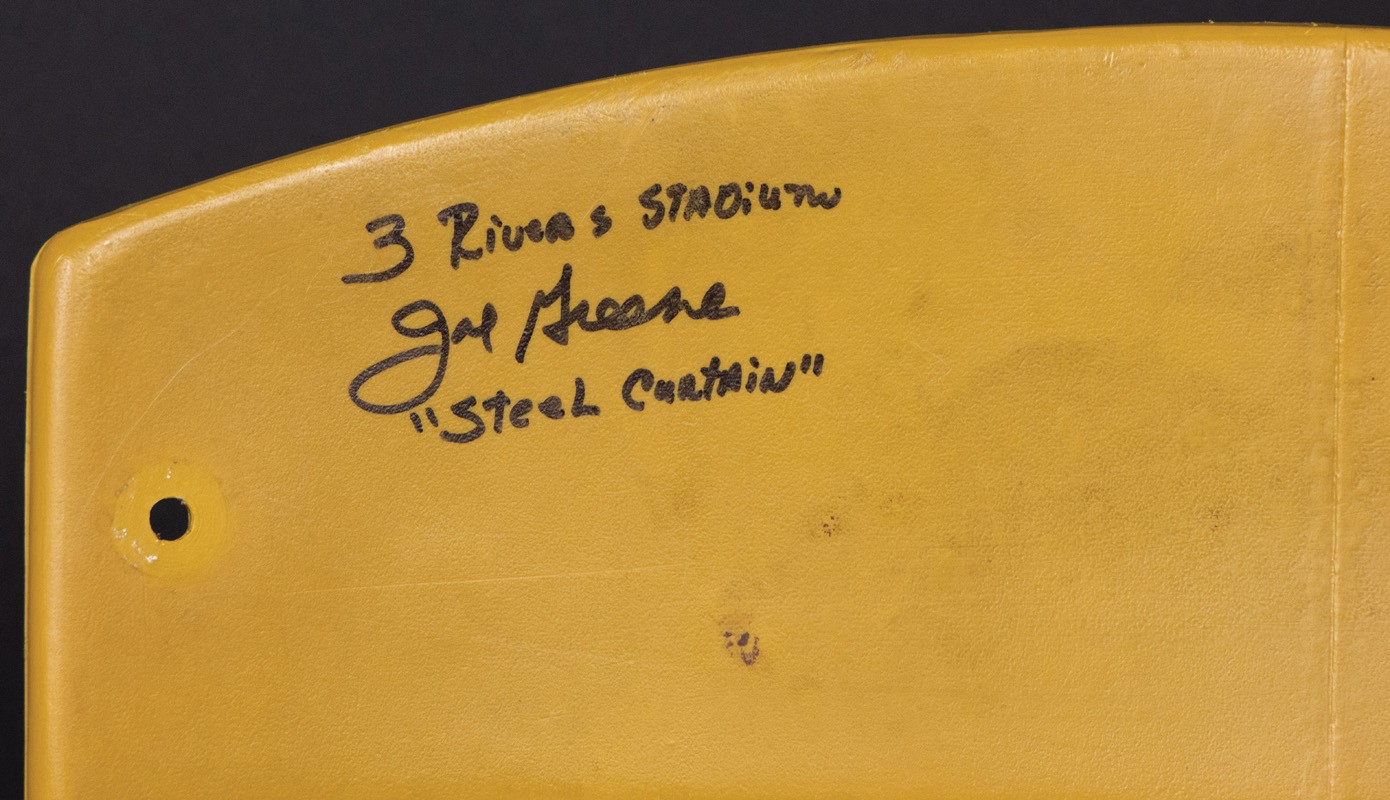 3 Rivers STADiUm
Joe Greene
"STeeL CurtAiN"